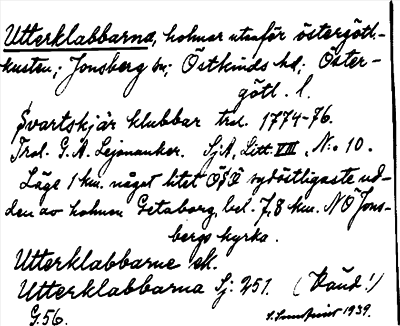 Utterklabbarna, holmar utanför östergötl.-
kusten; Jonsberg sn; Östkinds hd; Öster-
götl. l.
Svartskjär klubbar trol. 1774-76.
Trol. G. A. Lejonanker. SjA, Litt. VIII, N:o 10.
Läge 1 km. något litet OSO sydöstligaste ud-
den av holmen Getaborg, bel. 7,8 km. NO Jons-
bergs kyrka.
Utterklabbarne sk.
Utterklabbarna Sj: 251. (Känd!)
G.56. 1939.